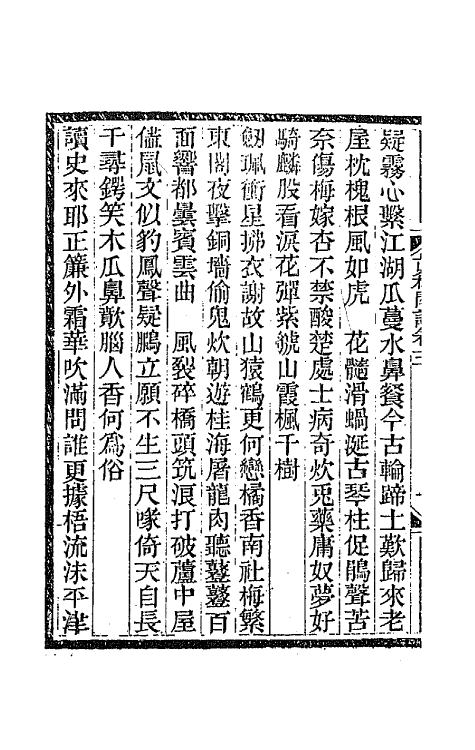 疑霧心繫江湖瓜蔓水鼻餐今古輪蹄土歎歸來老
屋枕槐根風如虎　花髓滑蝸涎古琴柱促鵑聲苦
奈傷梅嫁杏不禁酸楚處士病奇炊兎藥庸奴夢好
騎麟股看淚花彈紫虢山霞楓千樹
劒珮衝星拂衣謝故山猿鶴更何戀橘香南社梅繁
東閣夜擊銅墻偷鬼炊朝遊桂海屠龍肉聽鼟鼟百
面響都曇賓雲曲　風裂碎橋頭筑浪打破蘆中屋
儘鼠文似豹鳳聲疑鵩立願不生三尺喙倚天自長
千尋鍔笑木瓜鼻歕腦人香何爲俗
讀史來耶正簾外霜華吹滿問誰更據梧流沫平津